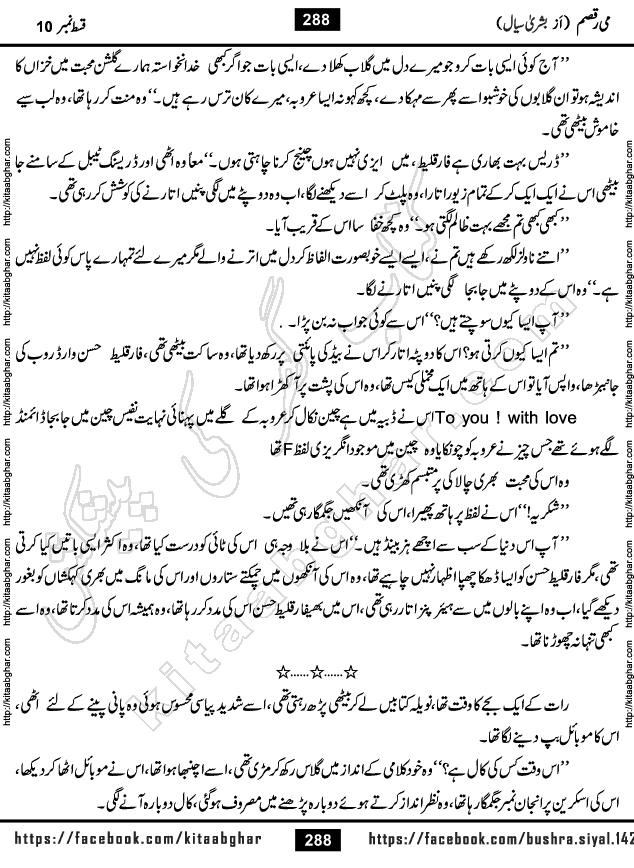 قسط نمبر 10
288
می رقصم (از بشریٰ سیال)
’’آج کوئی ایسی بات کرو جو میرے دل میں گلاب کھلا دے، ایسی بات جو اگر کبھی خدانخواستہ ہمارے گلشن محبت میں خزاں کا
اندیشہ ہو تو ان گلابوں کی خوشبو اسے پھر سے مہکا دے، کچھ کہو نہ ایسا عروبہ، میرے کان ترس رہے ہیں۔‘‘ وہ منت کر رہا تھا، وہ لب سیے
خاموش بیٹھی تھی۔
’’ڈریس بہت بھاری ہے فارقلیط، میں ایزی نہیں ہوں چینج کرنا چاہتی ہوں۔‘‘ معاً وہ اٹھی اور ڈریسنگ ٹیبل کے سامنے جا
بیٹھی اس نے ایک ایک کر کے تمام زیور اتارا، وہ پلٹ کر اسے دیکھنے لگا، اب وہ دوپٹے میں لگی پنیں اتارنے کی کوشش کر رہی تھی۔
’’کبھی کبھی تم مجھے بہت ظالم لگتی ہو۔‘‘ وہ کچھ خفا سا اس کے قریب آیا۔
’’اتنے ناولز لکھ رکھے ہیں تم نے، ایسے ایسے خوبصورت الفاظ کہ دل میں اترنے والے مگر میرے لئے تمہارے پاس کوئی لفظ نہیں
ہے۔‘‘ وہ اس کے دوپٹے میں جابجا لگی پنیں اتارنے لگا۔
’’آپ ایسا کیوں سوچتے ہیں؟‘‘ اس سے کوئی جواب نہ بن پڑا۔ .
’’تم ایسا کیوں کرتی ہو؟ اس کا دوپٹہ اتار کر اس نے بیڈ کی پائنتی پر رکھ دیا تھا، وہ ساکت بیٹھی تھی، فارقلیط حسن وارڈ روب کی
جانب بڑھا، واپس آیا تو اس کے ہاتھ میں ایک مخملی کیس تھا، وہ اس کی پشت پر آ کھڑا ہوا تھا۔
To you ! with love اس نے ڈبیہ میں سے چین نکال کر عروبہ کے گلے میں پہنائی نہایت نفیس چین میں جابجا ڈائمنڈ
لگے ہوئے تھے جس چیز نے عروبہ کو چونکایا وہ چین میں موجود انگریزی لفظ F تھا
وہ اس کی محبت بھری چالاکی پر متبسم کھڑی تھی۔
’’شکریہ!‘‘ اس نے لفظ پر ہاتھ پھیرا، اس کی آنکھیں جگمگا رہی تھیں۔
’’آپ اس دنیا کے سب سے اچھے ہزبینڈ ہیں۔‘‘ اس نے بلا وجہ ہی اس کی ٹائی کو درست کیا تھا، وہ اکثر ایسی باتیں کیا کرتی
تھی، مگر فارقلیط حسن کو ایسا ڈھکا چھپا اظہار نہیں چاہیے تھا، وہ اس کی آنکھوں میں چمکتے ستاروں اور اس کی مانگ میں بھری کہکشاں کو بغور
دیکھے گیا، اب وہ اپنے بالوں میں سے ہیئر پنز اتار رہی تھی، اس میں بھی فارقلیط حسن اس کی مدد کر رہا تھا، وہ ہمیشہ اس کی مدد کرتا تھا، وہ اسے
کبھی تنہا نہ چھوڑتا تھا۔
☆......☆......☆
رات کے ایک بجے کا وقت تھا، نویلہ کتابیں لے کر بیٹھی پڑھ رہتی تھی، اسے شدید پیاسی محسوس ہوئی وہ پانی پینے کے لئے اٹھی،
اس کا موبائل بپ دینے لگا تھا۔
’’اس وقت کس کی کال ہے؟‘‘ وہ خود کلامی کے انداز میں گلاس رکھ کر مڑی تھی، اسے اچنبھا ہوا تھا، اس نے موبائل اٹھا کر دیکھا،
اس کی اسکرین پر انجان نمبر جگمگا رہا تھا، وہ نظر انداز کرتے ہوئے دوبارہ پڑھنے میں مصروف ہو گئی، کال دوبارہ آنے لگی۔
http://kitaabghar.com
http://kitaabghar.com
http://kitaabghar.com
http://kitaabghar.com
http://kitaabghar.com
http://kitaabghar.com
http://kitaabghar.com
http://kitaabghar.com
http://kitaabghar.com
http://kitaabghar.com
http://kitaabghar.com
http://kitaabghar.com
کتاب گھر کی پیشکش
kitaabghar.com
https://facebook.com/kitaabghar
288
https://facebook.com/bushra.siyal.142